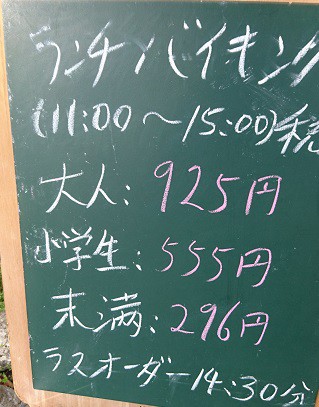 ランチバイキング
(11:00～15:00)税
大人:925円
小学生:555円
未満:296円
ラスオーダー14:30分